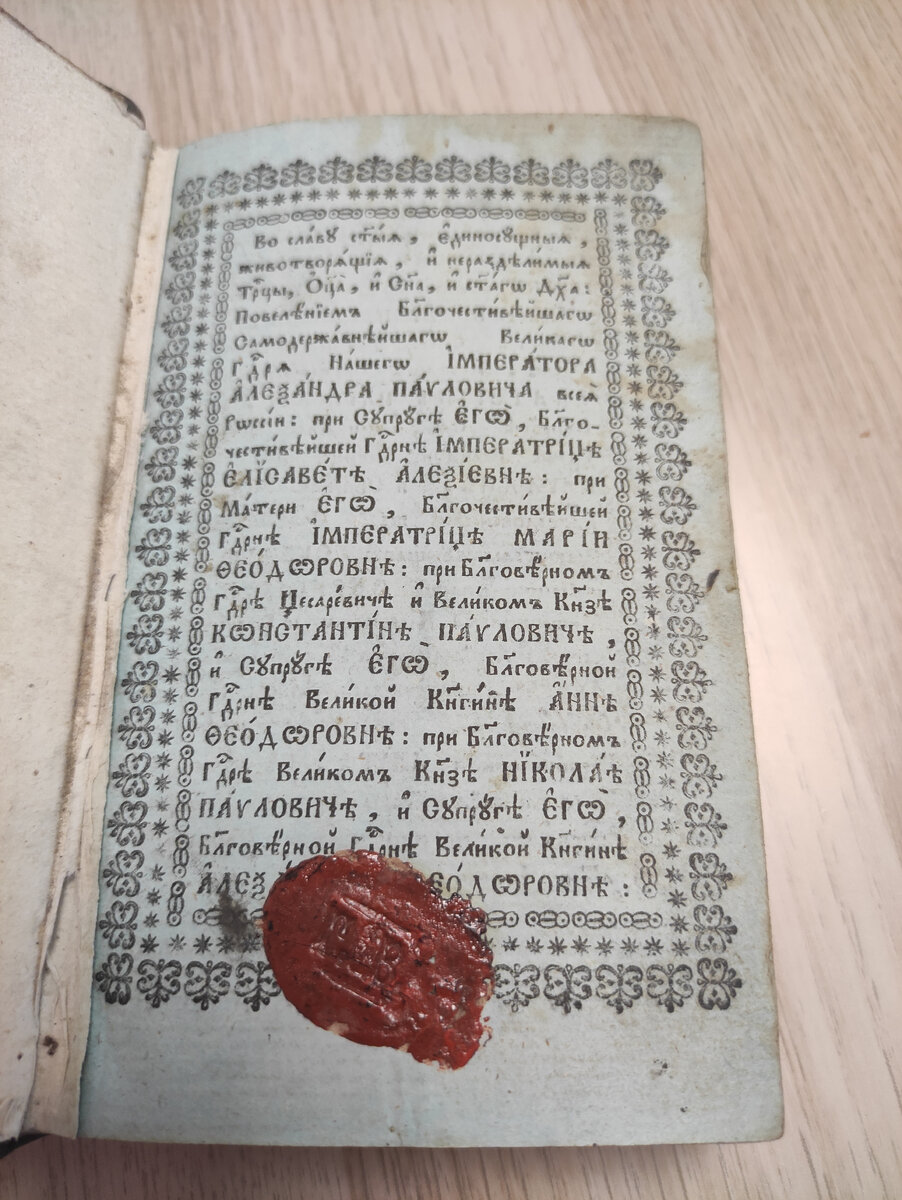 Во славу ст҃ы́ѧ, є҆диносꙋ́щныѧ,
животворѧ́щїѧ, и҆ нераздѣли́мыѧ
Трⷪ҇цы, Ѻ҆ц҃а̀, и҆ Сн҃а, и҆ ст҃а́гѡ Дх҃а:
Повелѣ́нїемъ Бл҃гочести́вѣйшагѡ
Самодержа́внѣйшагѡ Вели́кагѡ
Гдⷭ҇рѧ На́шегѡ І҆МПЕРА́ТОРА
А҆ЛЕѮА́НДРА ПА́ѴЛОВИЧА всеѧ̀
Рѡссі́и: при Сꙋпрꙋ́гѣ Є҆ГѠ̀, Бл҃го-
чести́вѣйшей Гдⷭ҇рнѣ І҆МПЕРАТРІ́ЦѢ
Є҆ЛІСАВЕ́ТѢ А҆ЛЕѮІ́ЕВНѢ: при
Ма́тери Є҆ГѠ̀, Бл҃гочести́вѣйшей
Гдⷭ҇рнѣ І҆МПЕРАТРІ́ЦѢ МАРІ́И
ѲЕО́ДѠРОВНѢ: при Бл҃говѣ́рномъ
Гдⷭ҇рѣ Цесаре́вичѣ и҆ Вели́комъ Кн҃зѣ
КѠНСТАНТІ́НѢ ПА́ѴЛОВИЧѢ,
и҆ Сꙋпрꙋ́гѣ Є҆ГѠ̀, Бл҃говѣ́рной
Гдⷭ҇рнѣ Вели́кой Кнⷢ҇и́нѣ А҆́ННѢ
ѲЕО́ДѠРОВНѢ: при Бл҃говѣ́рномъ
Гдⷭ҇рѣ Вели́комъ Кн҃зѣ НІКОЛА́Ѣ
ПА́ѴЛОВИЧѢ, и҆ Сꙋпрꙋ́гѣ Є҆ГѠ̀,
Бл҃говѣ́рной Гдⷭ҇рнѣ Вели́кой Кнⷢ҇и́нѣ
А҆ЛЕѮ ЕО́ДѠРОВНѢ: